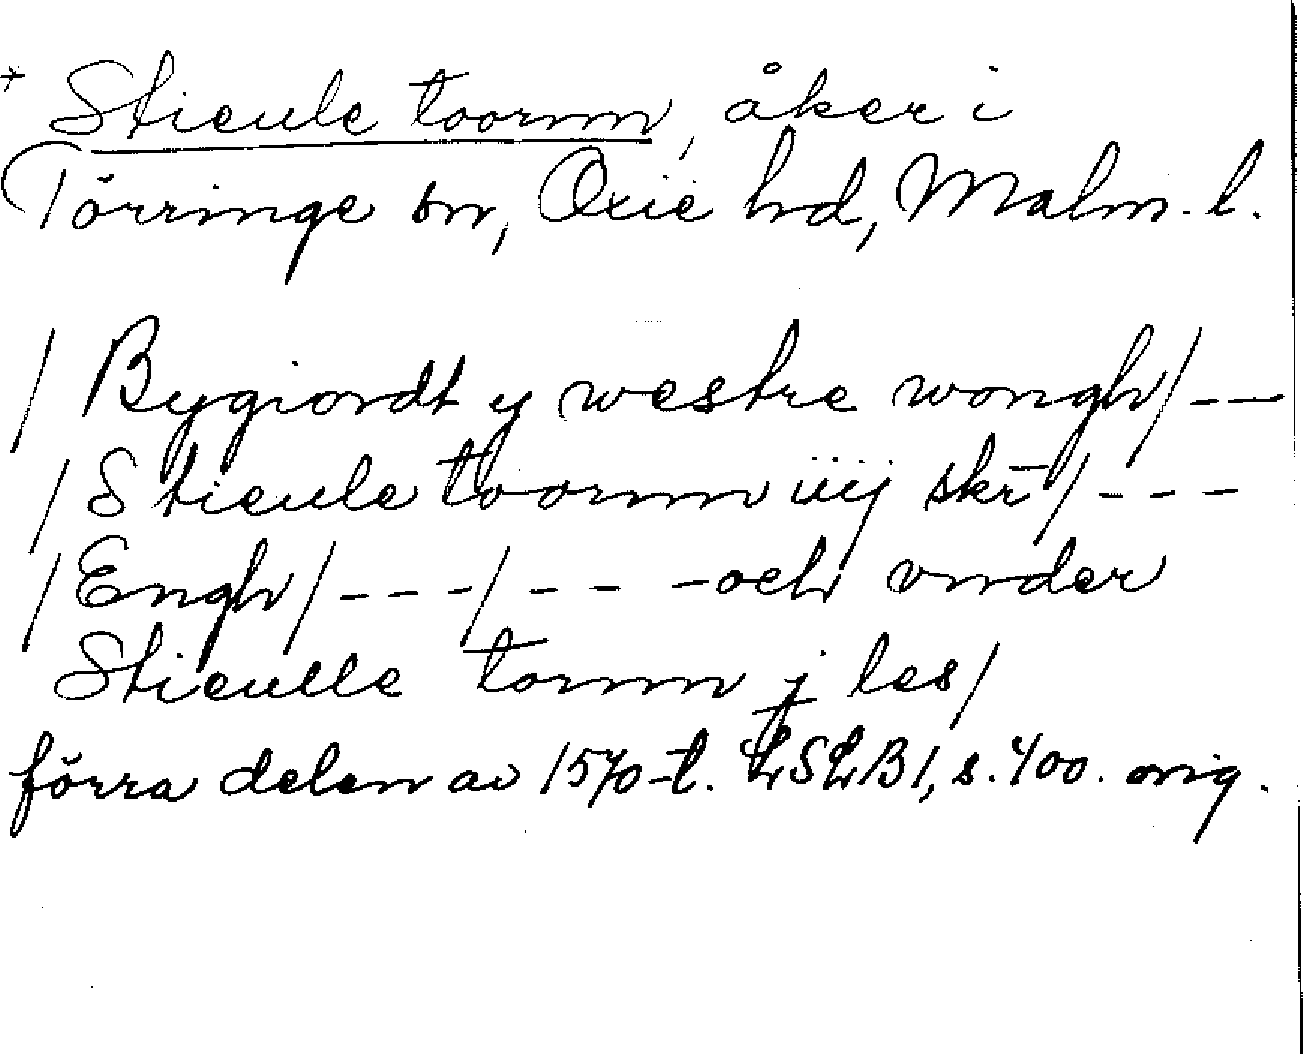 + Stieule toornn, åker i
Törringe sn, Oxie hd, Malm. l.
/ Bygiordt y westre wongh / --
/ Stieule toornn iiij skr̄ / ---
/ Engh / --- / -- - och vnder
Stieulle tornn j les /
förra delen av 1570-t. LSLB 1, s. 400. orig.